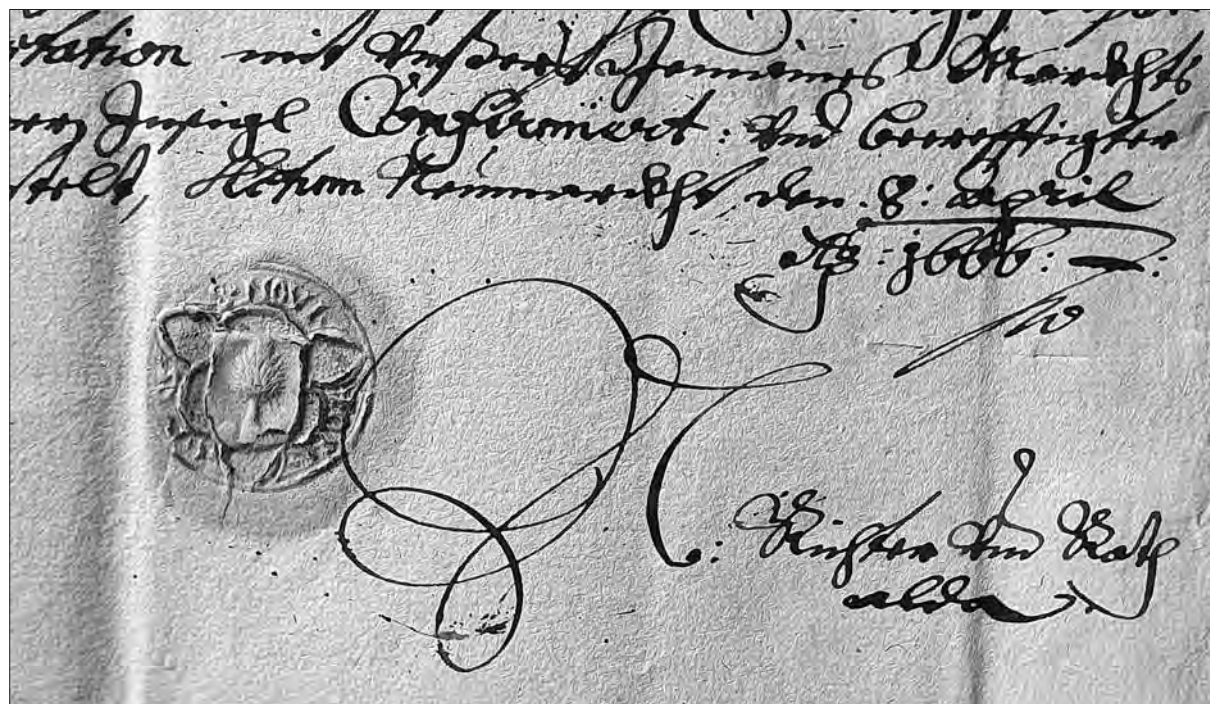 tation mit Unsers gemaines Marckhts
Insigl Confirmiert: und becrefftigter
stelt, Actum Neümarckht den 8: April
Aō: 1666:
Richter und Rath
alda